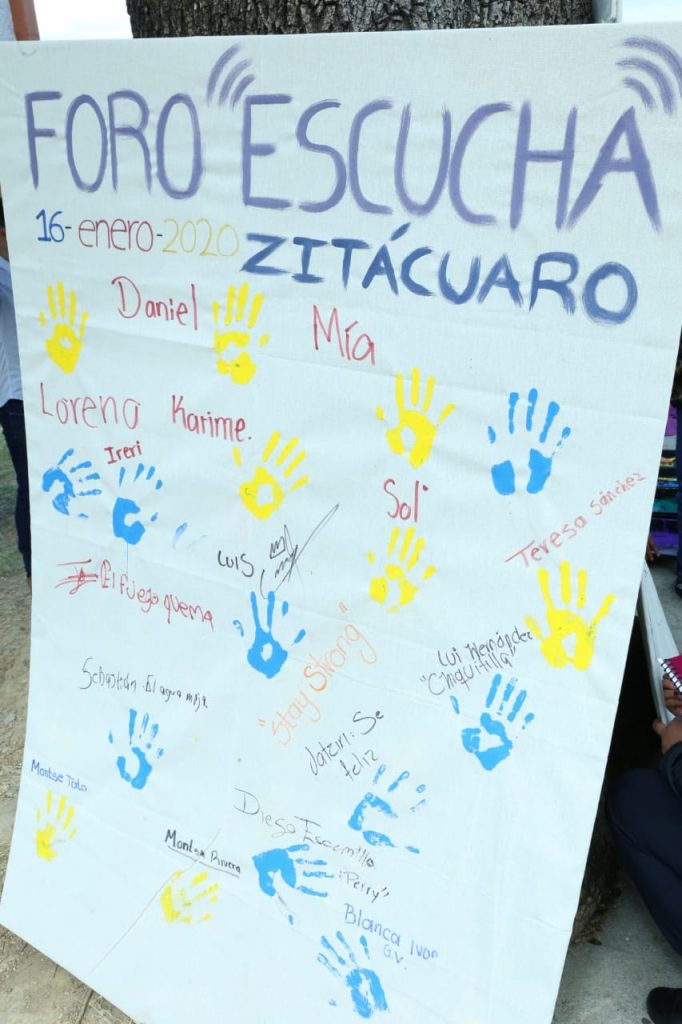 FORO "ESCUCHA"
16-enero-2020
ZITÁCUARO
Daniel
Mía
Loreno
Karime.
Ireri
Sol
Teresa Sánchez
LUIS
El fuego quema
"Stay strong"
Lui Hernández
"Chiquitilla"
Sebastián. El agua moja
Jatziri: Se
feliz
Montse
Diego Escamilla
"Perry"
Blanca Ivon
G.V.